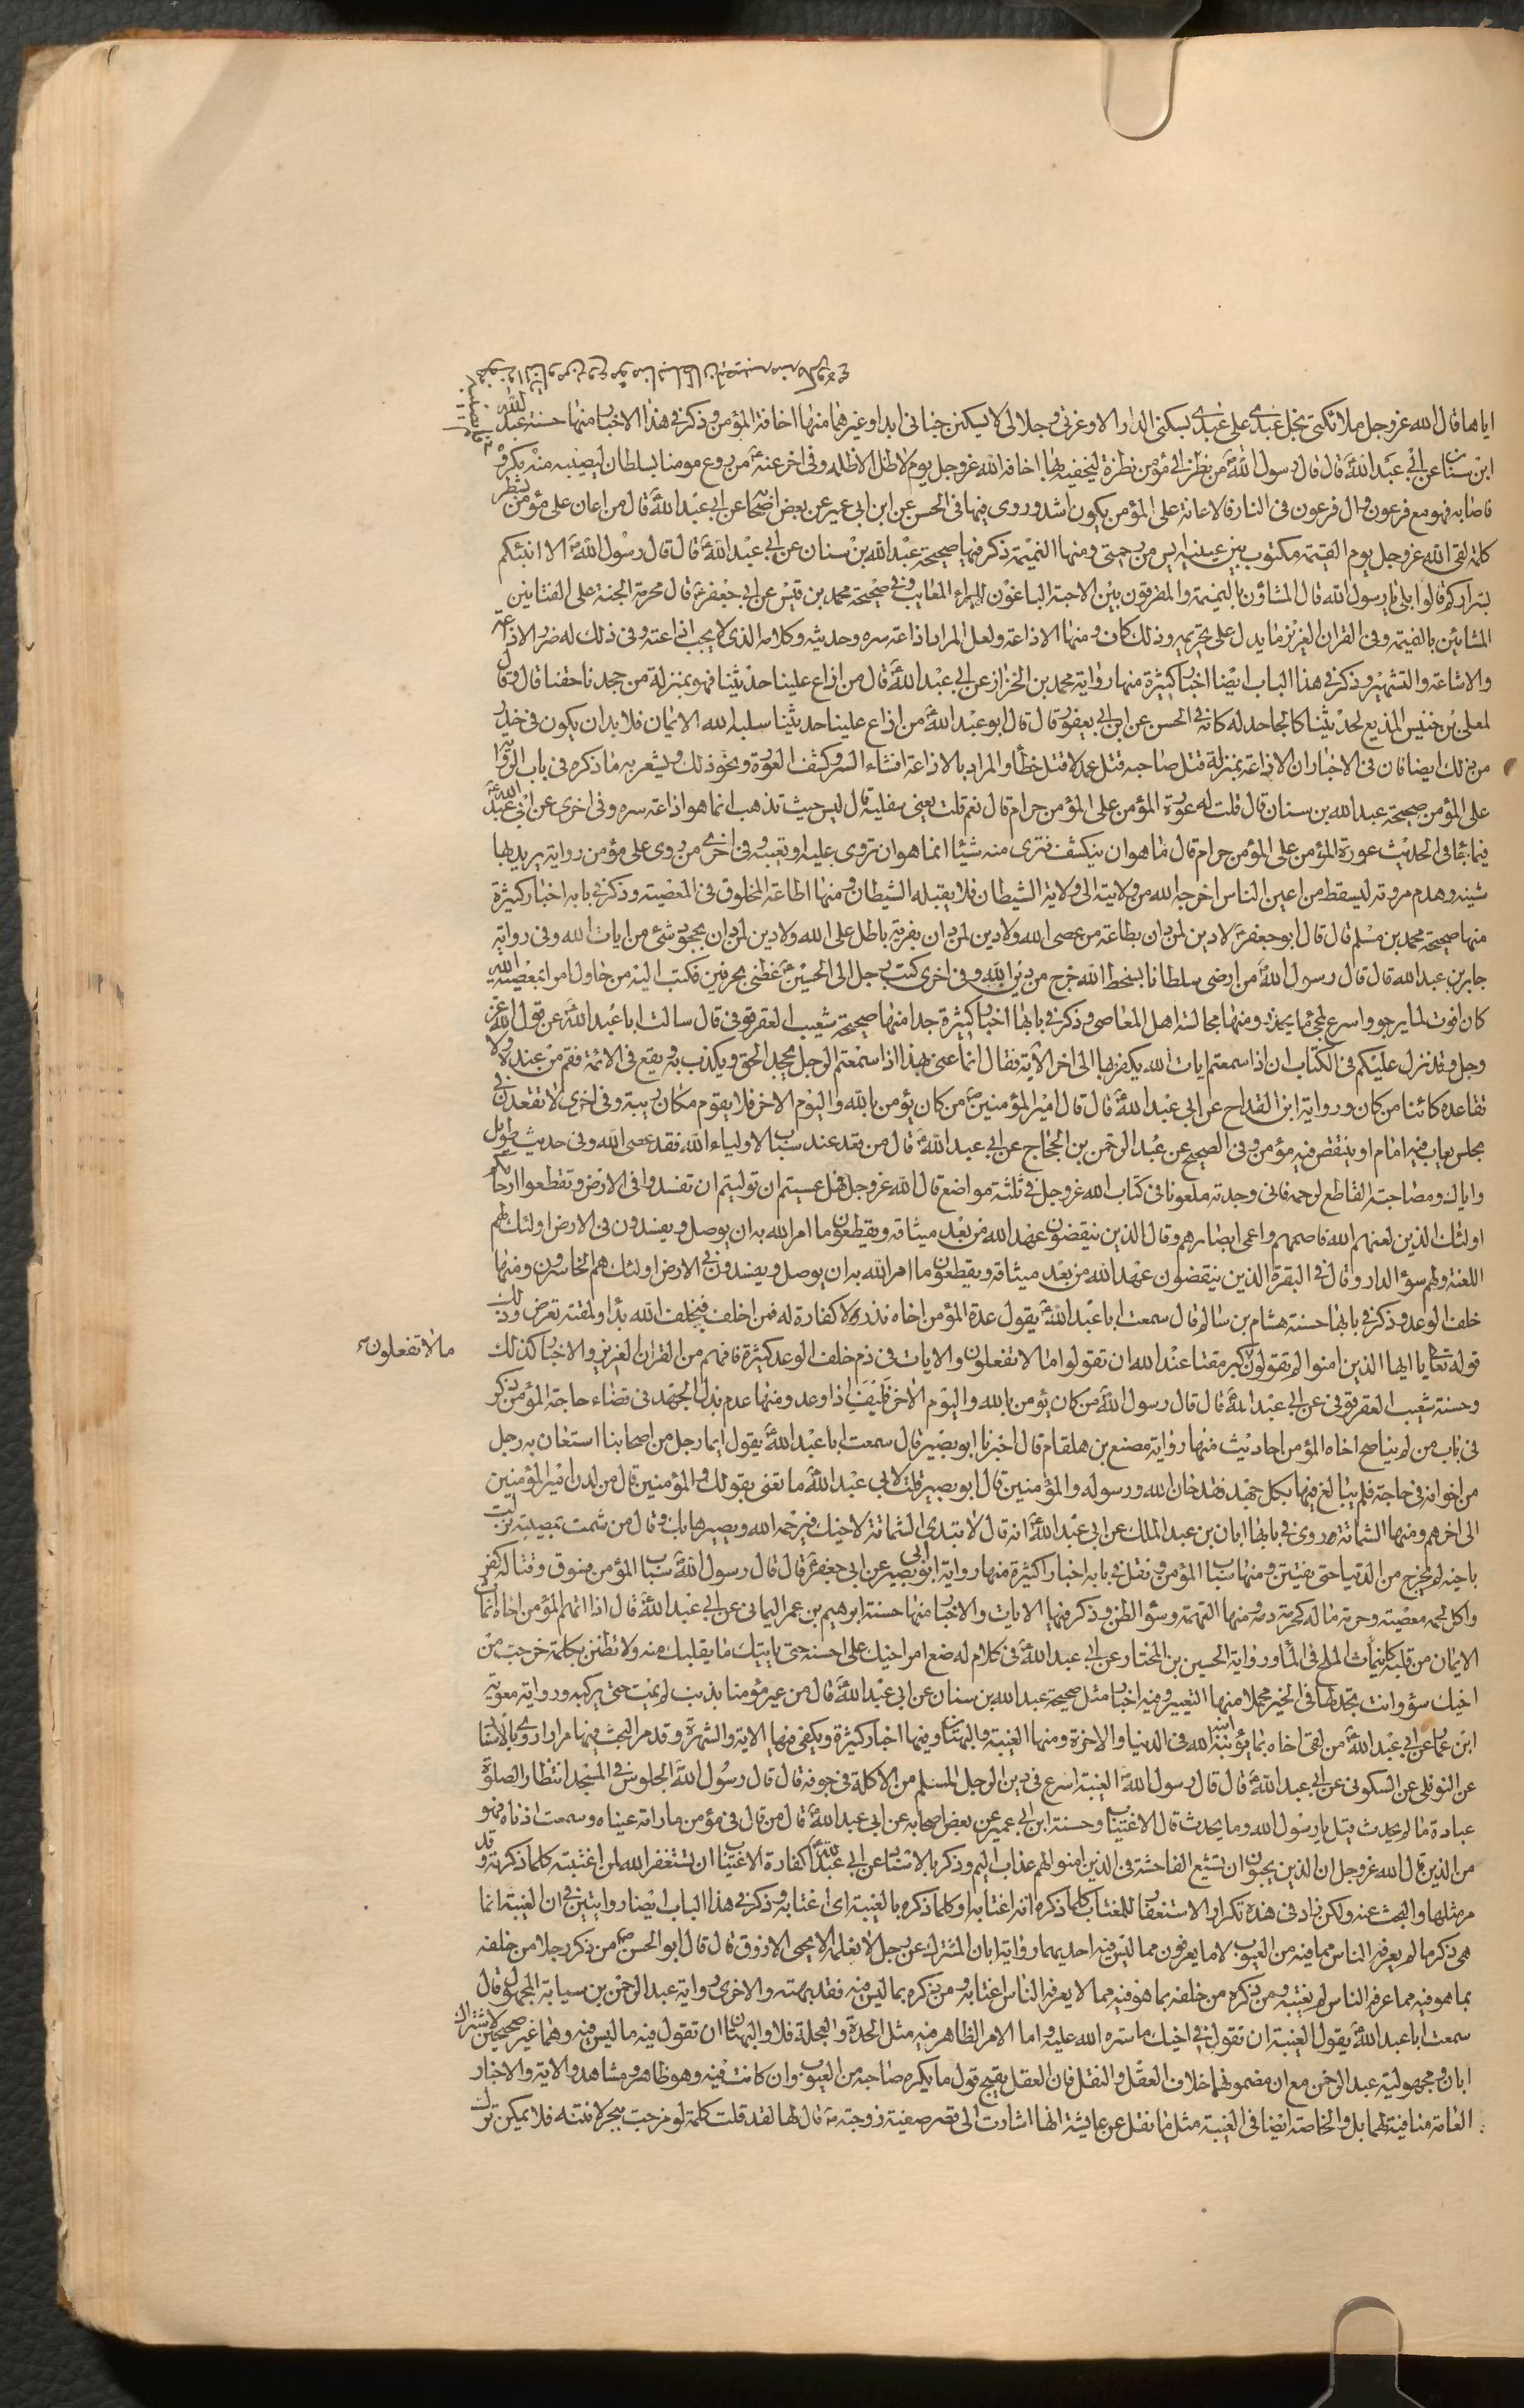 اياها قال الله عزوجل ملائكتى بخل عبدى على عبدى بسكنى الدار الا وعزتى وجلالى لا يسكنن جنانى ابدا وغيرهما منها اخافة المؤمن وذكر فى هذا الاخبار منها حسنة عبد الله
ابن سنان عن ابى عبد الله ع قال قال رسول الله ص من نظر الى مؤمن نظرة ليخيفه بها اخافه الله عزوجل يوم لا ظل الا ظله وفى اخر عنه ع من روع مومنا بسلطان ليصيبه منه مكروه
فاصابه فهو مع فرعون وال فرعون فى النار فالاعانة على المؤمن يكون اشد وروى فيها فى الحسن عن ابن ابى عمير عن بعض اصحابنا عن ابى عبد الله ع قال من اعان على مؤمن بشطر
كلمة لقى الله عزوجل يوم القيمة مكتوب بين عينيه ايس من رحمتى ومنها النميمة ذكر فيها صحيحة عبد الله بن سنان عن ابى عبد الله ع قال قال رسول الله ص الا انبئكم
بشراركم قالوا بلى يا رسول الله قال المشاؤن بالنميمة والمفرقون بين الاحبة الباغون للبراء المعايب وفى صحيحة محمد بن قيس عن ابى جعفر ع قال محرمة الجنة على القتاتين
المشائين بالنميمة وفى القران العزيز ما يدل على تحريمه وذلك كان ومنها الاذاعة ولعل المراد اذاعة سره وحديثه وكلامه الذى لا يجب اذاعته وفى ذلك له ضرر الاذاعة
والاشاعة والتشهير وذكر فى هذا الباب ايضا اخبارا كثيرة منها رواية محمد بن الخزاز عن ابى عبد الله ع قال من اذاع علينا حديثنا فهو بمنزلة من جحدنا حقنا قال وقال
لمعلى بن خنيس المذيع لحديثنا كالجاحد له كانه فى الحسن عن ابن ابى يعفور قال قال ابو عبد الله ع من اذاع علينا حديثنا سلبه الله الايمان فلا بد ان يكون فى خذر
من ذلك ايضا فان فى الاخبار ان الاذاعة بمنزلة قتل صاحبه قتل عمد لا قتل خطأ والمراد بالاذاعة افشاء السر وكشف العورة ونحو ذلك ويشعر به ما ذكره فى باب الرواية
على المؤمن صحيحة عبد الله بن سنان قال قلت له عورة المؤمن على المؤمن حرام قال نعم قلت يعنى سفليه قال ليس حيث تذهب انما هو اذاعة سره وفى اخرى عن ابى عبد الله ع
فيما جاء فى الحديث عورة المؤمن على المؤمن حرام قال ما هو ان ينكشف فترى منه شيئا انما هو ان تروى عليه او تعيبه وفى اخرى من روى على مؤمن رواية يريد بها
شينه وهدم مروته ليسقط من اعين الناس اخرجه الله من ولايته الى ولاية الشيطان فلا يقبله الشيطان ومنها اطاعة المخلوق فى المعصية وذكر فى بابه اخبار كثيرة
منها صحيحة محمد بن مسلم قال قال ابو جعفر ع لا دين لمن دان بطاعة من عصى الله ولا دين لمن دان بفرية باطل على الله ولا دين لمن دان بجحود شئ من ايات الله وفى رواية
جابر بن عبد الله قال قال رسول الله ص من ارضى سلطانا بسخط الله خرج من دين الله وفى اخرى كتب رجل الى الحسين ع عظنى بحرفين فكتب اليه من حاول امرا بمعصية الله
كان افوت لما يرجو واسرع لمجئ ما يحذر ومنها مجالسة اهل المعاصى وذكر فى بابها اخبارا كثيرة جدا منها صحيحة شعيب العقرقوفى قال سالت ابا عبد الله ع عن قول الله عز
وجل وقد نزل عليكم فى الكتاب ان اذا سمعتم ايات الله يكفر بها الى اخر الآية فقال انما عنى بهذا اذا سمعتم الرجل يجحد الحق ويكذب به ويقع فى الائمة فقم من عنده ولا
تقاعده كائنا من كان ورواية ابن القداح عن ابى عبد الله ع قال قال امير المؤمنين ع من كان يؤمن بالله واليوم الاخر فلا يقوم مكان ريبة وفى اخرى لا تقعدن فى
مجلس يعاب فيه امام او ينتقص فيه مؤمن وفى الصحيح عن عبد الرحمن بن الحجاج عن ابى عبد الله ع قال من قعد عند سباب لاولياء الله فقد عصى الله وفى حديث طويل
واياك ومصاحبة القاطع لرحمه فانى وجدته ملعونا فى كتاب الله عزوجل فى ثلثة مواضع قال الله عزوجل فهل عسيتم ان توليتم ان تفسدوا فى الارض وتقطعوا ارحامكم
اولئك الذين لعنهم الله فاصمهم واعمى ابصارهم وقال الذين ينقضون عهد الله من بعد ميثاقه ويقطعون ما امر الله به ان يوصل ويفسدون فى الارض اولئك لهم
اللعنة ولهم سوء الدار وقال فى البقرة الذين ينقضون عهد الله من بعد ميثاقه ويقطعون ما امر الله به ان يوصل ويفسدون فى الارض اولئك هم الخاسرون ومنها
خلف الوعد وذكر فى بابها حسنة هشام بن سالم قال سمعت ابا عبد الله ع يقول عدة المؤمن اخاه نذر لا كفارة له فمن اخلف فبخلف الله بدأ ولمقته تعرض وذلك
قوله تعالى يا ايها الذين امنوا لم تقولون كبر مقتا عند الله ان تقولوا ما لا تفعلون والايات فى ذم خلف الوعد كثيرة فافهم من القران العزيز والاخبار كذلك
ما لا تفعلون
وحسنة شعيب العقرقوفى عن ابى عبد الله ع قال قال رسول الله ص من كان يؤمن بالله واليوم الاخر فليف اذا وعد ومنها عدم بذل الجهد فى قضاء حاجة المؤمن ذكر
فى باب من لم يناصح اخاه المؤمن احاديث منها رواية مصنع بن هلقام قال اخبرنا ابو بصير قال سمعت ابا عبد الله ع يقول ايما رجل من اصحابنا استعان به رجل
من اخوانه فى حاجة فلم يبالغ فيها بكل جهد فقد خان الله ورسوله والمؤمنين قال ابو بصير قلت لابى عبد الله ع ما تعنى بقولك والمؤمنين قال من لدن امير المؤمنين
الى اخرهم ومنها الشماتة وروى فى بابها ابان بن عبد الملك عن ابى عبد الله ع انه قال لا تبتدى الشماتة لاخيك فيرحمه الله ويصيرها بك وقال من شمت بمصيبة نزلت
باخيه لم يخرج من الدنيا حتى يفتتن ومنها سباب المؤمن ونقل فى بابه اخبارا كثيرة منها رواية ابى بصير عن ابى جعفر ع قال قال رسول الله ص سباب المؤمن فسوق وقتاله كفر
واكل لحمه معصية وحرمة ماله كحرمة دمه ومنها التهمة وسوء الظن وذكر فيها الايات والاخبار منها حسنة ابرهيم بن عمر اليمانى عن ابى عبد الله ع قال اذا اتهم المؤمن اخاه انماث
الايمان من قلبه كانمياث الملح فى الماء ورواية الحسين بن المختار عن ابى عبد الله ع فى كلام له ضع امر اخيك على احسنه حتى ياتيك ما يقلبك منه ولا تظنن بكلمة خرجت من
اخيك سوء وانت تجد لها فى الخير محملا منها التعيير وفيه اخبار مثل صحيحة عبد الله بن سنان عن ابى عبد الله ع قال من عير مؤمنا بذنب لم يمت حتى يركبه ورواية معوية
ابن عمار عن ابى عبد الله ع من لقى اخاه بما يؤنبه انبه الله فى الدنيا والاخرة ومنها الغيبة والبهتان وفيها اخبار كثيرة ويكفى فيها الاية والشهرة وقد مر البحث فيها مرارا روى بالاسناد
عن النوفلى عن السكونى عن ابى عبد الله ع قال قال رسول الله ص الغيبة اسرع فى دين الرجل المسلم من الاكلة فى جوفه قال قال رسول الله ص الجلوس فى المسجد انتظار الصلوة
عبادة ما لم يحدث قيل يا رسول الله وما يحدث قال الاغتياب وحسنة ابن ابى عمير عن بعض اصحابه عن ابى عبد الله ع قال من قال فى مؤمن ما راته عيناه وسمعت اذناه فهو
من الذين قال الله عزوجل ان الذين يحبون ان تشيع الفاحشة فى الذين امنوا لهم عذاب اليم وذكر بالاسناد عن ابى عبد الله ع كفارة الاغتياب ان يستغفر الله لمن اغتبته كلما ذكرته وقد
مر مثلها والبحث عنه ولكن زاد فى هذه تكرار الاستغفار للمغتاب كلما ذكره انه اغتابه او كلما ذكره بالغيبة اى اغتابه وذكر فى هذا الباب ايضا روايتين فى ان الغيبة انما
هى ذكر ما لم يعرفه الناس مما فيه من العيوب لا ما يعرفون مما ليس فيه احديهما رواية ابان المشترك عن رجل لا نعلمه الا يحيى الازرق قال قال ابو الحسن ع من ذكر رجلا من خلفه
بما هو فيه مما عرفه الناس لم يغتبه ومن ذكره من خلفه بما هو فيه مما لا يعرفه الناس اغتابه ومن ذكره بما ليس فيه فقد بهته والاخرى رواية عبد الرحمن بن سيابة المجهول قال
سمعت ابا عبد الله ع يقول الغيبة ان تقول فى اخيك ما ستره الله عليه واما الامر الظاهر فيه مثل الحدة والعجلة فلا والبهتان ان تقول فيه ما ليس فيه وهما غير صحيحين لاشتراك
ابان ومجهولية عبد الرحمن مع ان مضمونهما خلاف العقل والنقل فان العقل يقبح قول ما يكره صاحبه من العيوب وان كانت فيه وهو ظاهر ومشاهد والاية والاخبار
العامة منافية لهما بل والخاصة ايضا فى الغيبة مثل ما نقل عن عايشة انها اشارت الى قصر صفية زوجته ص قال لها لقد قلت كلمة لو مزجت ببحر لانتنه فلا يمكن ترك